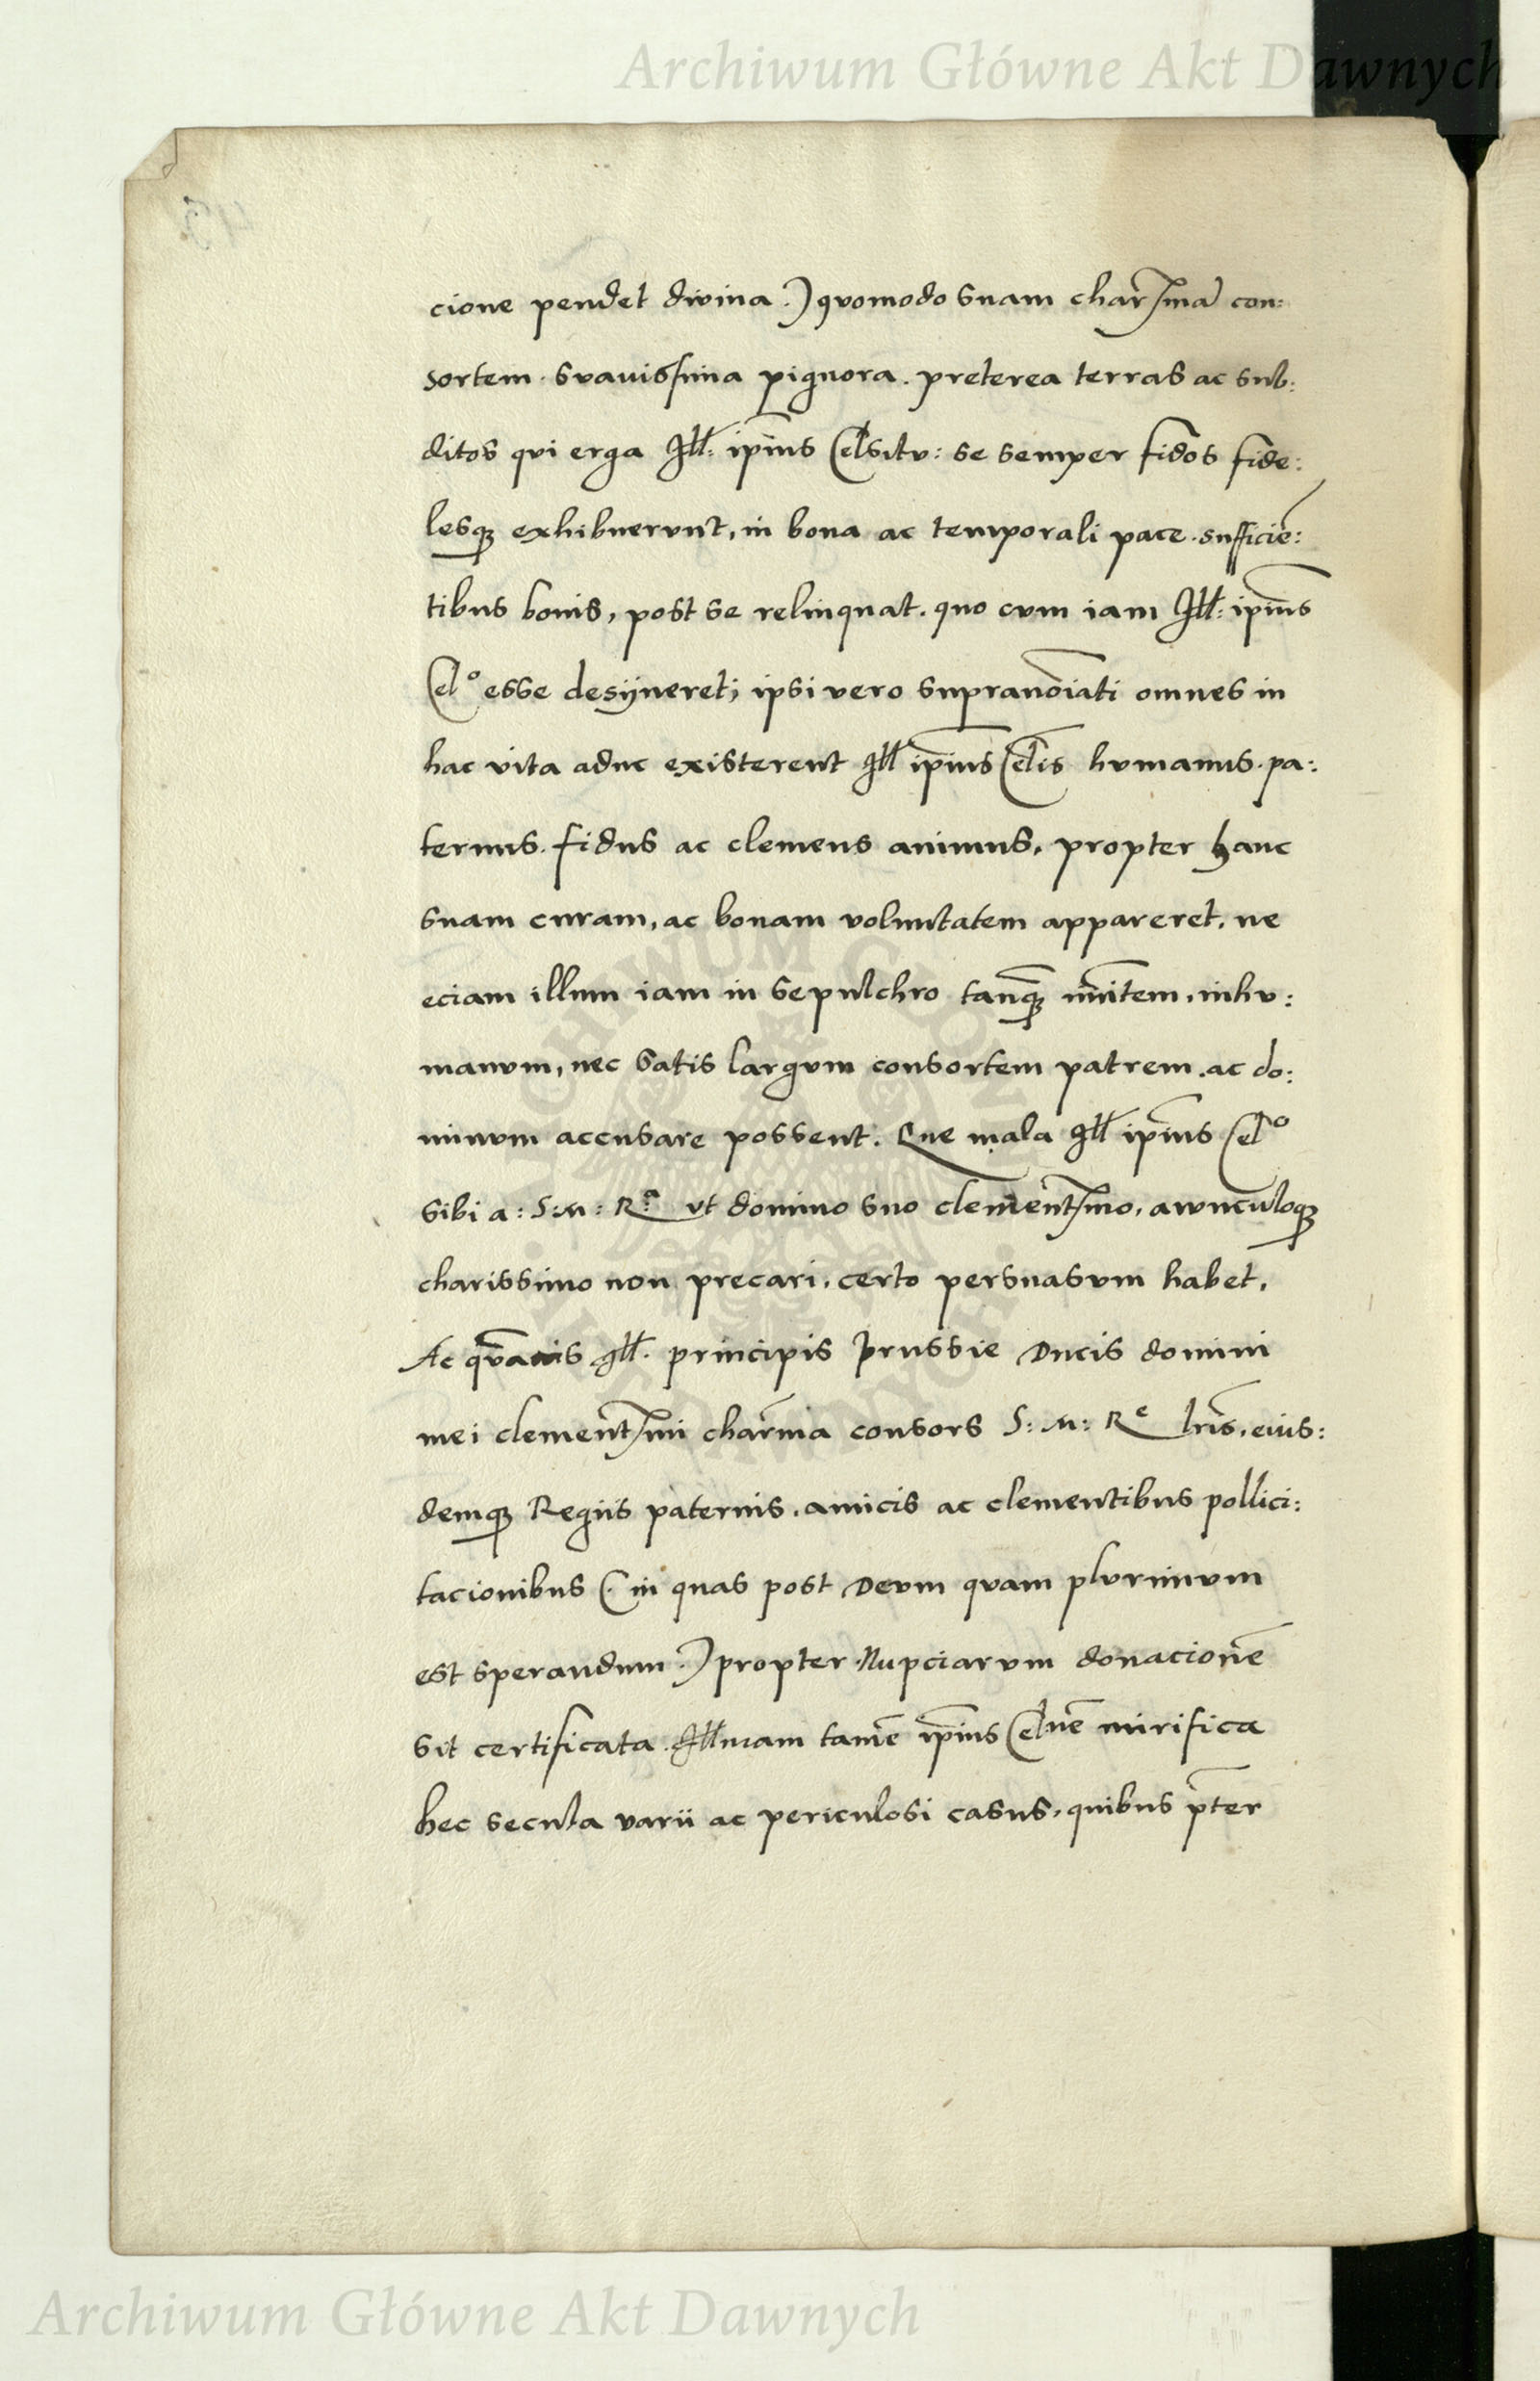 Archiwum Główne Akt Dawnych
cione pendet divina.) quomodo suam char̄ſma͂ con:
sortem. suauisſima pignora. preterea terras ac sub:
ditos qui erga Ill: ip̄ius Celsitu: se semper fidos fide:
lesqȝ exhibuerunt, in bona ac temporali pace. sufficie͂:
tibus bonis, post se relinquat. quo cum iam Ill: ip̄ius
Celᵒ esse desijneret; ipsi vero supranoi͂ati omnes in
hac vita aduc existerent Ill ip̄ius Cel͂is humanus. pa:
ternus. fidus ac clemens animus, propter hanc
suam curam, ac bonam voluntatem appareret. ne
eciam illum iam in sepulchro tanqȝ͂ inhu:
manum, nec satis largum consortem patrem. ac do:
minum accusare possent. Que mala Ill ip̄ius Celᵒ
sibi a: S: M: Rᵃ ut domino suo clement͂ſmo, awnculoqȝ
charissimo non precari. certo persuasum habet.
Ac qua͂uis Ill. principis Prussie Ducis domini
mei clement͂ſmi char̄ma consors S: M: Rᵉ lr̄is. eius:
demqȝ Regiis paternis. amicis ac clementibus pollici:
tacionibus (. in quas post Deum quam plurimum
est sperandum.) propter Nupciarum donacione͂
sit certificata. Illmam tame͂ ip̄ius Celne͂ mirifica
hec secula varii ac periculosi casus, quibus p͂ter
Archiwum Główne Akt Dawnych